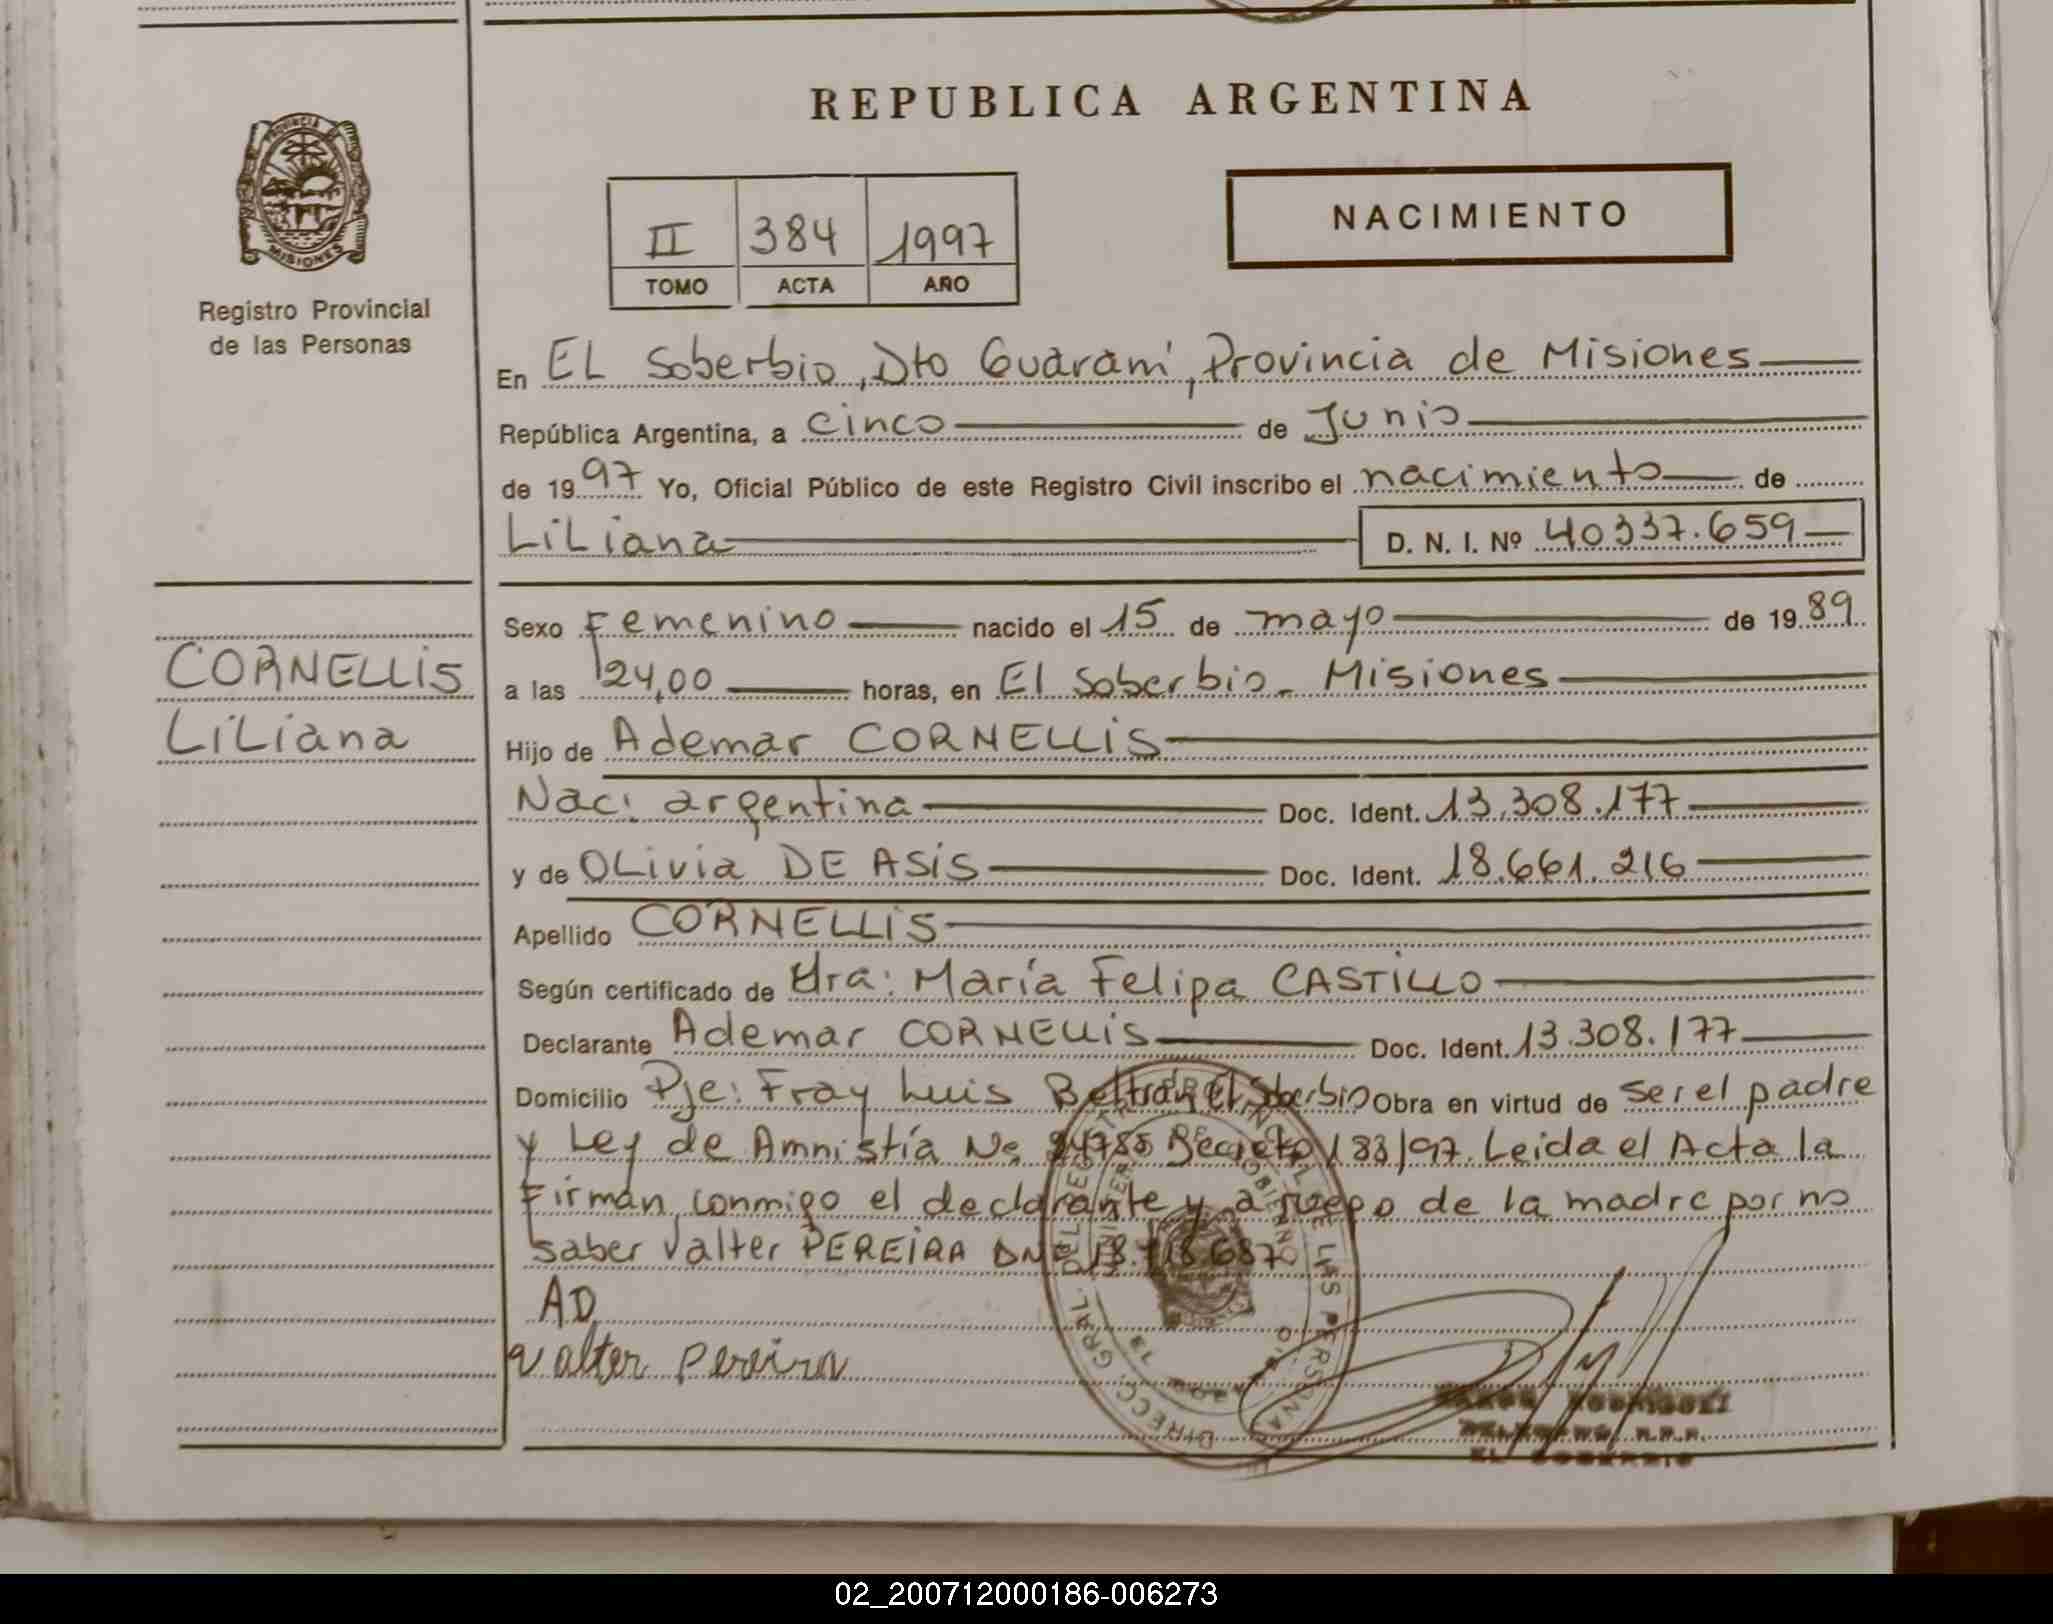 REPUBLICA ARGENTINA
PROVINCIA
MISIONES
Registro Provincial
de las Personas
II 384 1997
TOMO ACTA AÑO
NACIMIENTO
En EL Soberbio, Dto Guaraní, Provincia de Misiones
República Argentina, a cinco de Junio
de 1997 Yo, Oficial Público de este Registro Civil inscribo el nacimiento de
LiLiana D. N. I. Nº 40337.659
CORNELLiS
LiLiana
Sexo Femenino nacido el 15 de mayo de 1989
a las 24,00 horas, en El Soberbio - Misiones
Hijo de Ademar CORNELLiS
Nac: argentina Doc. Ident. 13.308.177
y de OLivia DE ASiS Doc. Ident. 18.661.216
Apellido CORNELLiS
Según certificado de Dra: María Felipa CASTiLLO
Declarante Ademar CORNELLiS Doc. Ident. 13.308.177
Domicilio Pje: Fray Luis Beltrán El Soberbio Obra en virtud de ser el padre
y Ley de Amnistía Nº 24755 Decreto 183/97. Leida el Acta la
Firman conmigo el declarante y a ruego de la madre por no
saber Valter PEREiRA DNI 18.718.687
AD
Valter Pereira
DIRECC. GRAL. DEL REGISTRO PROVINCIAL DE LAS PERSONAS
EL SOBERBIO
02_200712000186-006273